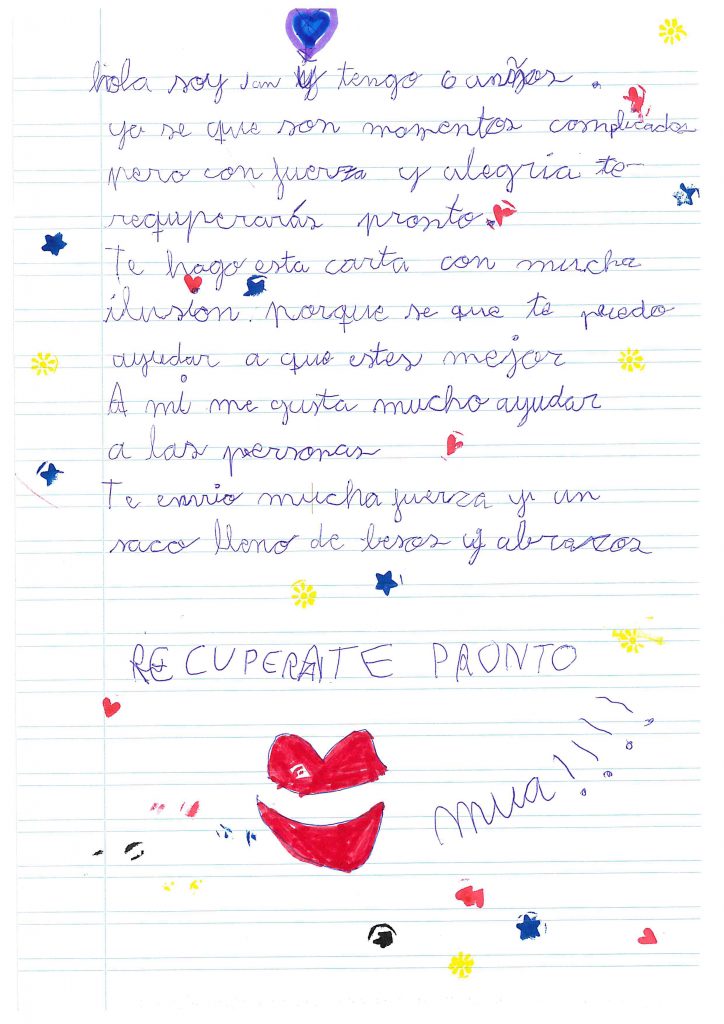 hola soy Jan y tengo 6 años.
yo se que son momentos complicados
pero con fuerza y alegria te
requperarás pronto.
Te hago esta carta con mucha
ilusion. porque se que te puedo
ayudar a que estes mejor
A mi me gusta mucho ayudar
a las personas
Te envio mucha fuerza y un
saco lleno de besos y abrazos
RECUPERATE PRONTO
mua!!!!